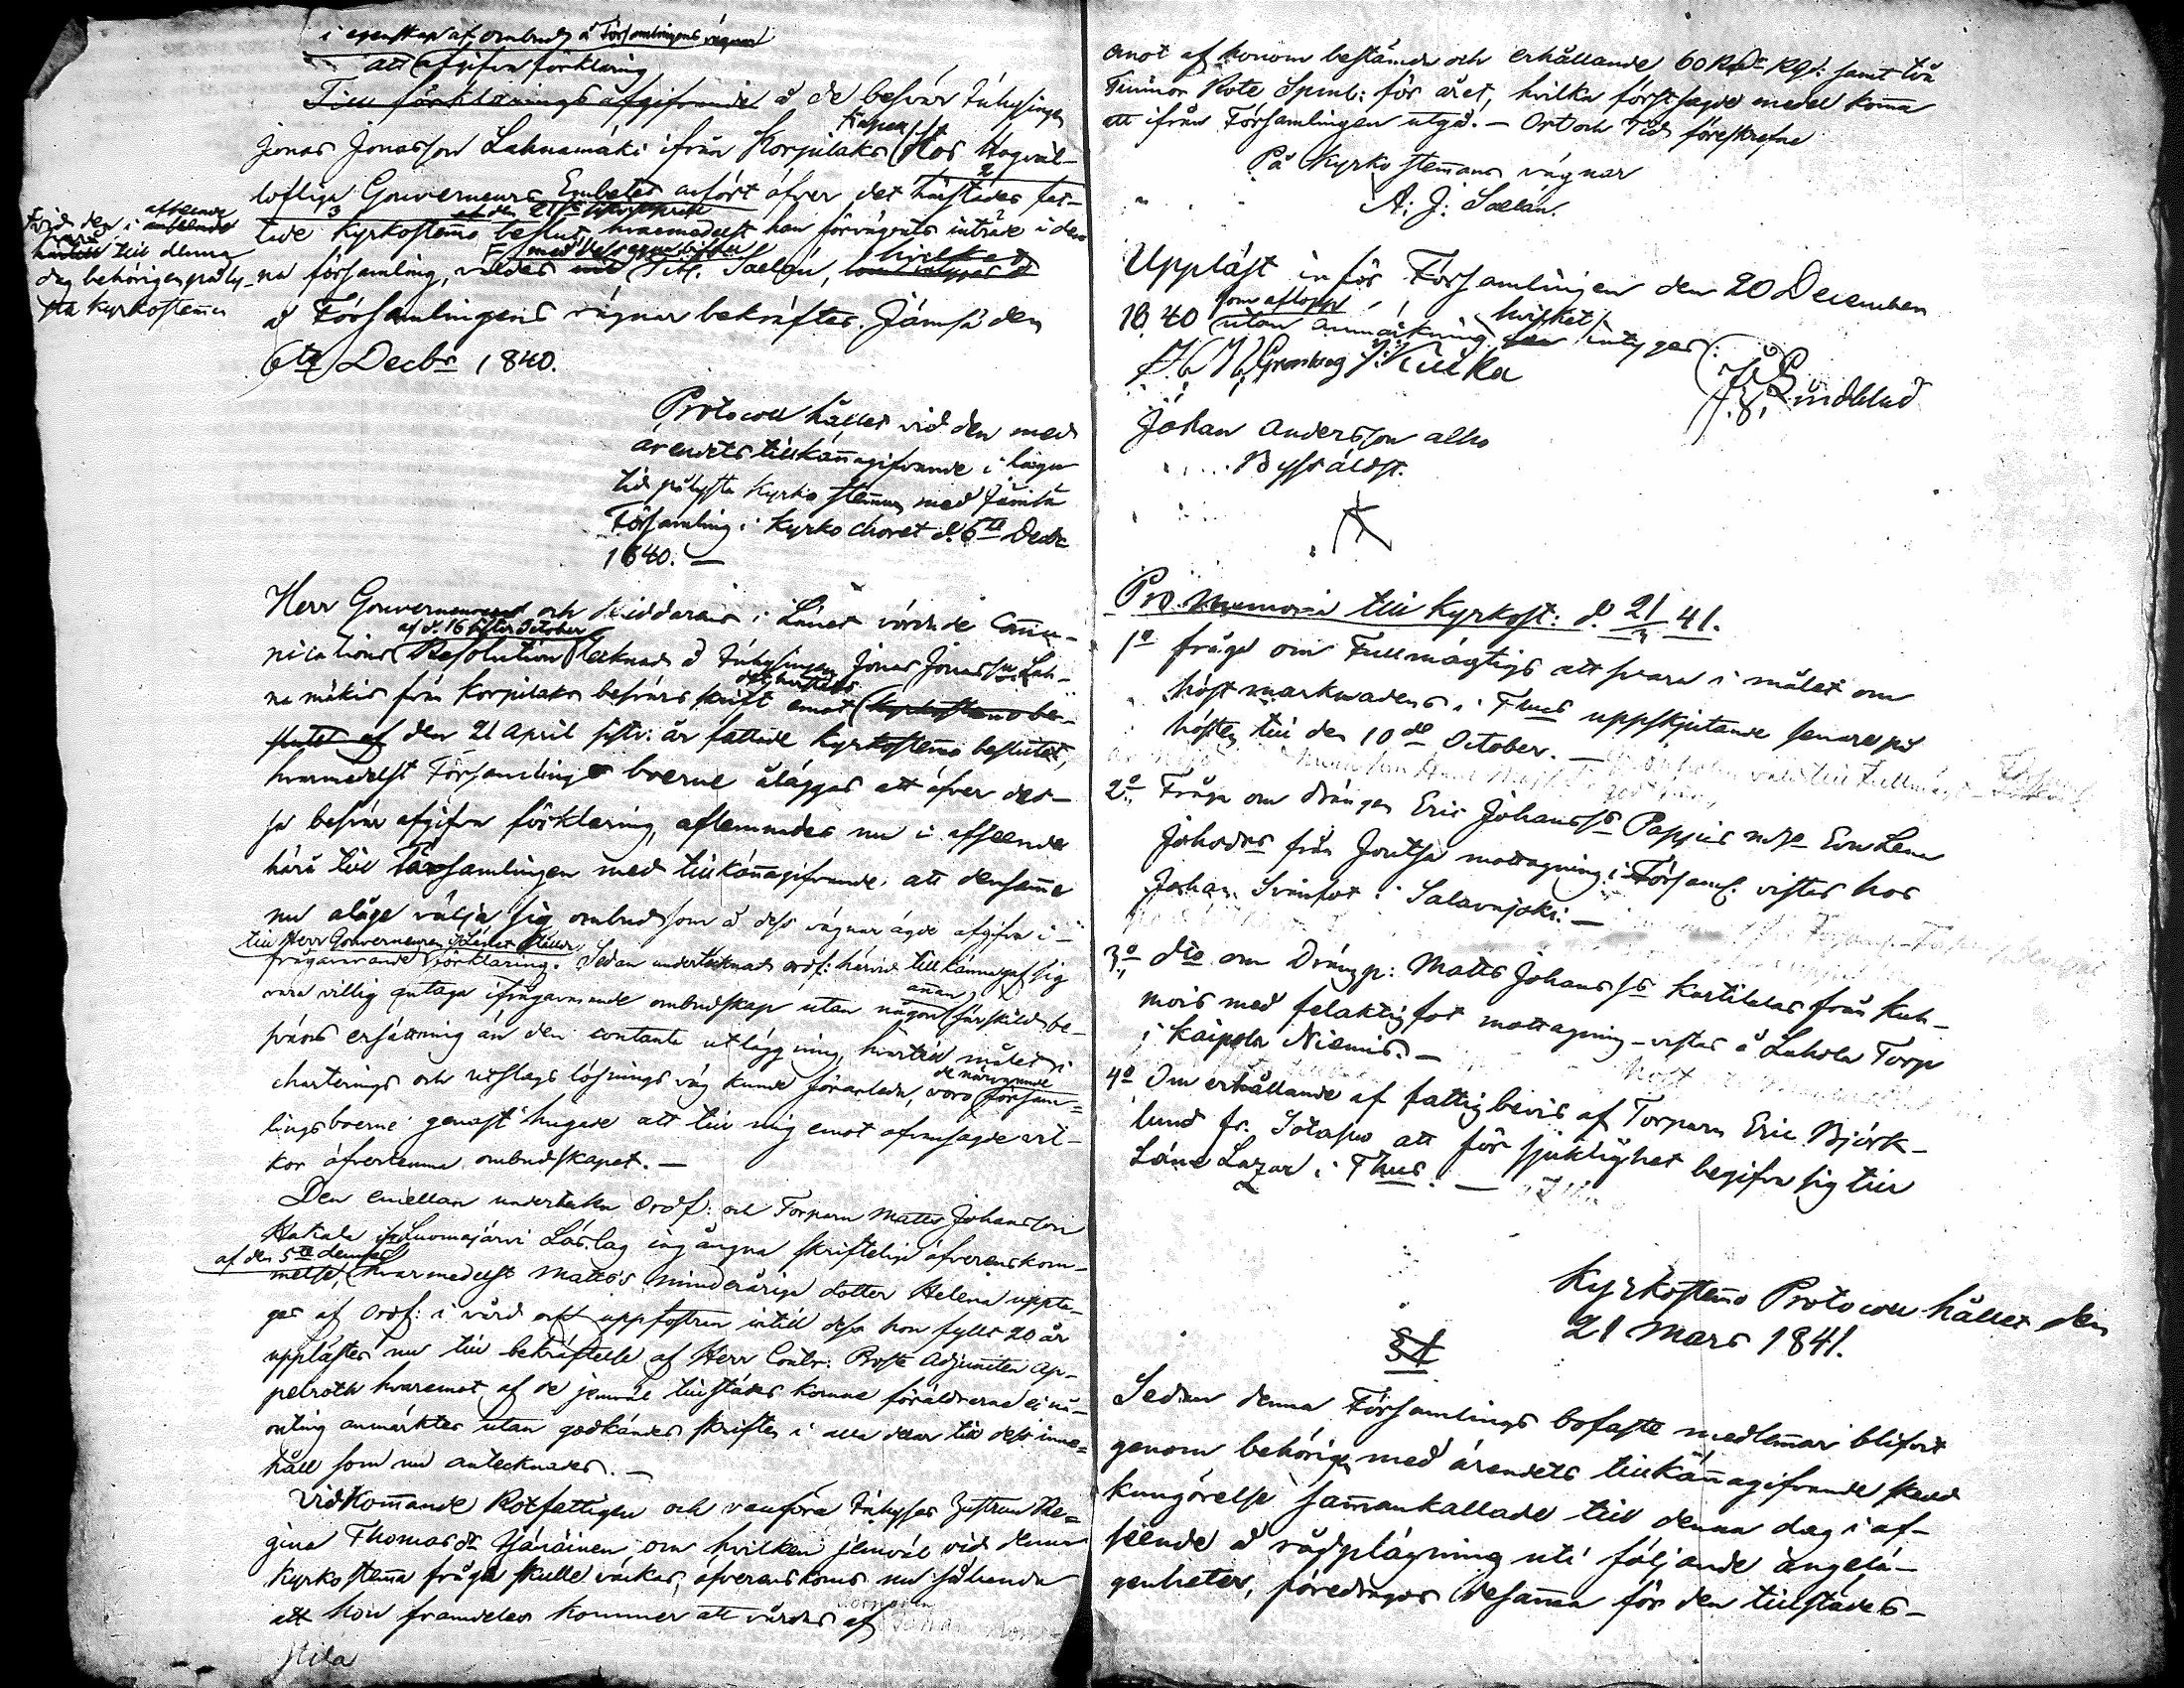 i egenskap af ombud å Församlingens vägnar
att afgifva förklaring
Till förklarings afgifvande å de besvär Inhysingen
Jonas Jonasson Lahnamäki ifrån Korpilaks Kapell hos Högväl-
loflige Gouverneurs Embetet anfört öfver det härstädes fat-
tade Kyrkostemo beslut, hvarmedelst han förvägrats inträde i den
vid den i afseende
härå till denna
dag behörigen påly-
sta Kyrkostemma
na församling, valdes Saelan, hvilket
å Församlingens vägnar bekräftes. Jämsä den
6te Decbr 1840.
Protocoll hållet vid den med
ärendets tillkännagifvande i laga
tid pålysta Kyrko stemma med Jämsä
Församling i Kyrko choret d. 6te Decbr
1840. —
Herr Gouverneurens och Riddarens i Länet vördade Commu-
af d. 16 sistl. October
nications Resolution tecknad å Inhysingen Jonas Jonasson Lah-
na mäkis från Korpilaks besvärs skrift emot Kyrkostemo be-
slutet af den 21 April sistl: år fattade Kyrkostemo beslutet,
hvarmedelst Församlings boerne ålägges att öfver des-
sa besvär afgifva förklaring, aflemnades nu i afseende
härå till Församlingen med tillkännagifvande, att densamme
nu ålåge välja sig ombud som å dess vägnar ägde afgifva i-
till Herr Gouverneuren i Länet ställd
frågavarande förklaring. Sedan undertecknad ordf: härvid tillkännagaf sig
vara villig antaga ifrågavarande ombudskap utan någon annan särskild be-
svärs ersättning än den contanta utläggning, hvartill målet i
charterings och utslags lösnings väg kunde föranleda, voro de närvarande försam-
lingsboerne genast hugade att till mig emot ofvansagde vil-
kor öfverlemna ombudskapet. —
Den emellan undertecknad Ordf: och Torparen Matts Johansson
Hakala ifr. Luomajärvi Läslag ingångna skriftelige öfverenskom-
af den 5te dennes
melse, hvarmedelst Matts's minderåriga dotter Helena uppta-
ges af Ordf: i vård och uppfostran intill dess hon fyllt 20 år
upplästes nu till bekräftelse af Herr Contr: Prosts Adjuncten Ap-
pelroth hvaremot af de jemväl tillstädes komne föräldrarne ej nå-
onting anmärktes utan godkändes skriften i alla delar till dess inne-
håll som nu antecknades. —
Vidkommande Rotfattigen och vanföra Inhyses hustrun Re-
gina Thomasdr Hjäräinen om hvilken jemväl vid denna
Kyrkostemma fråga skulle väckas, öfverenskoms nu sålunda
att hon framdeles kommer att vårdas af Torparen Johan
stila
emot af honom bestämda och erhållande 60 Rgs: samt två
Tunnor Rote Spml: för året, hvilka först sagde medel komma
att ifrån Församlingen utgå. — Ort och Tid föreskrefne
På Kyrko stemmans vägnar
A. J. Saelan.
Uppläst inför Församlingen den 20 December
1840 som aflopp utan anmärkning hvilket intygar:
Gronberg J: Kuckka
J. Lindblad
Johan Andersson Alho
Byssäldst.
Pro Memoria till Kyrkost: d. 21/3 41.
1o fråga om Fullmägtigs att svara i målet om
höst marknadens i Thus uppskjutande senare på
hösten till den 10de October. —
2o Fråga om drängen Eric Johanss Pappius m/h Eva Lena
Johsdr från Joutsa mottagning i Församl. vistas hos
Johan Svinfot i Salavajoki. —
3o dto om Drängp: Matts Johanss Kurtilas från Kuh-
mois med felaktig fot mottagning — vistas å Lahola Torp
i Kaipola Niemis. —
4o Om erhållande af fattigbevis af Torparen Eric Björk-
lund fr. att för sjuklighet begifva sig till
Läne Lazar. i Thus. —
Kyrkostemo Protocoll hållet den
21 Mars 1841.
§ 1
Sedan denna Församlings bofaste medlemmar blifvit
genom behörigen med ärendets tillkännagifvande skedd
kungörelse sammankallade till denna dag i af-
seende å rådplägning uti följande angelä-
genheter, föredrogos desamma för den tillstädes-